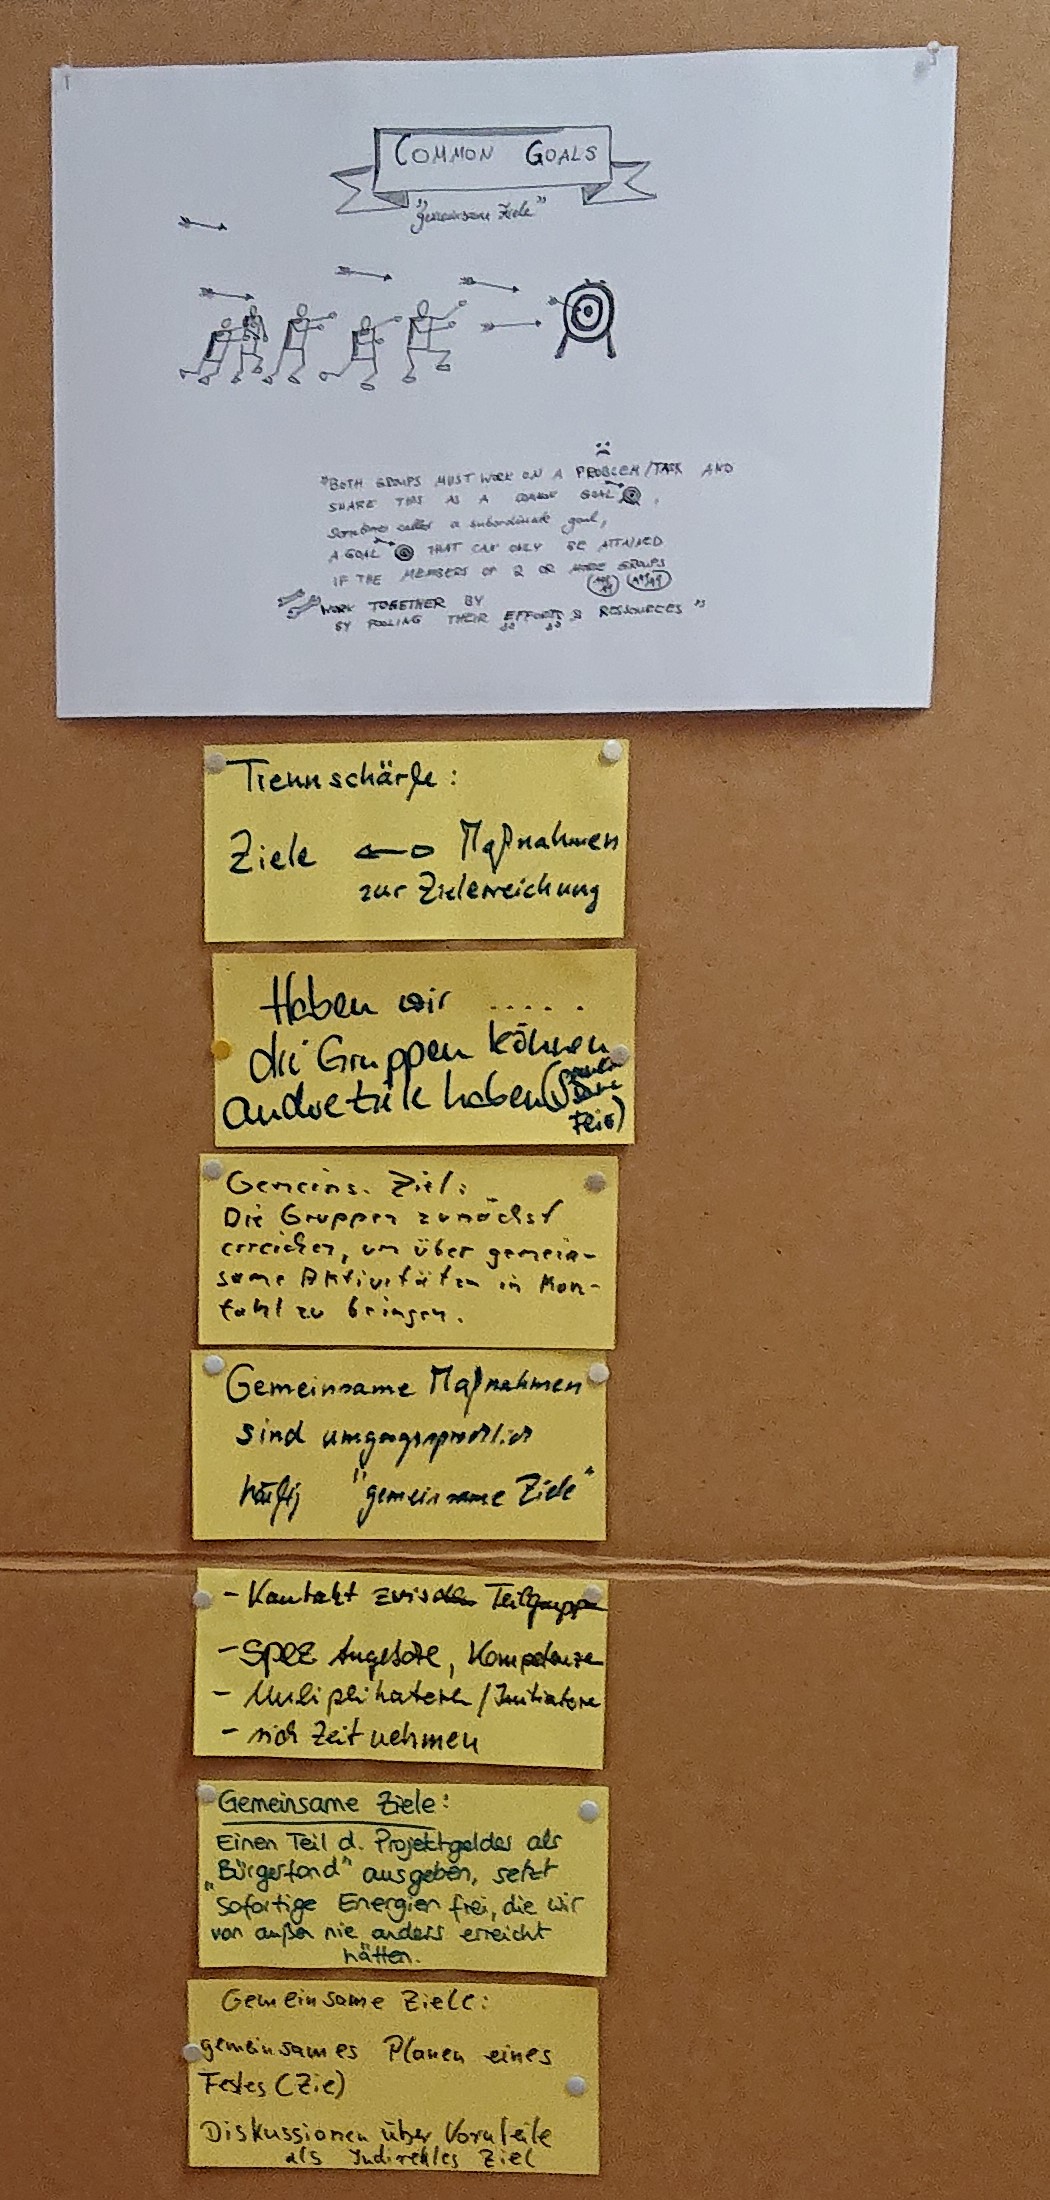 COMMON GOALS
"gemeinsame Ziele"
"BOTH GROUPS MUST WORK ON A PROBLEM/TASK AND
SHARE THIS AS A COMMON GOAL,
sometimes called a subordinate goal,
A GOAL THAT CAN ONLY BE ATTAINED
IF THE MEMBERS OF 2 OR MORE GROUPS
WORK TOGETHER BY
BY POOLING THEIR EFFORTS & RESSOURCES"
Trennschärfe:
Ziele Maßnahmen
zur Zielerreichung
Haben wir .....
die Gruppen können
andre Ziele haben
Gemeins. Ziel:
Die Gruppen zunächst
erreichen, um über gemein-
same Aktivitäten in Kon-
takt zu bringen.
Gemeinsame Maßnahmen
sind umgangssprachlich
häufig "gemeinsame Ziele"
- Kontakt zwischen Teilgruppen
- Spez Angebote, Kompetenzen
- Muliplikatoren/Initiatoren
- sich Zeit nehmen
Gemeinsame Ziele:
Einen Teil d. Projektgeldes als
"Bürgerfond" ausgeben, setzt
sofortige Energien frei, die wir
von außen nie anders erreicht
hätten.
Gemeinsame Ziele:
gemeinsames Planen eines
Festes (Ziel)
Diskussionen über Vorurteile
als Indirektes Ziel